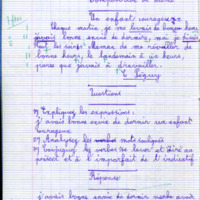 Un enfant courageux
Chaque matin, je me levais de bonne heure
j'avais bonne envie de dormir, mais je disais
de me réveiller de
bonne heure, le lendemain à six heures,
parce que j'avais à travailler
Questions
1) Expliquez les expressions :
j'avais bonne envie de dormir un enfant
courageux
2) Analysez les mots soulignés
3) Conjuguez les verbes se lever et dire au
présent et à l'imparfait de l'indicatif
Réponse
j'avais bonne envie de dormir